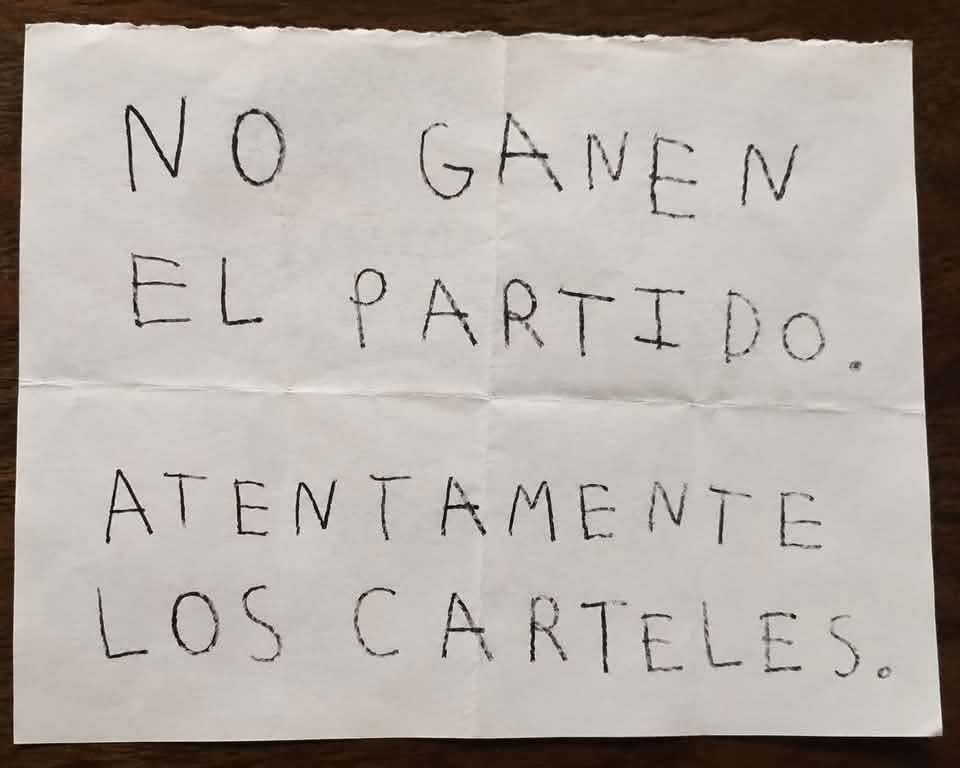 NO GANEN
EL PARTIDO.
ATENTAMENTE
LOS CARTELES.